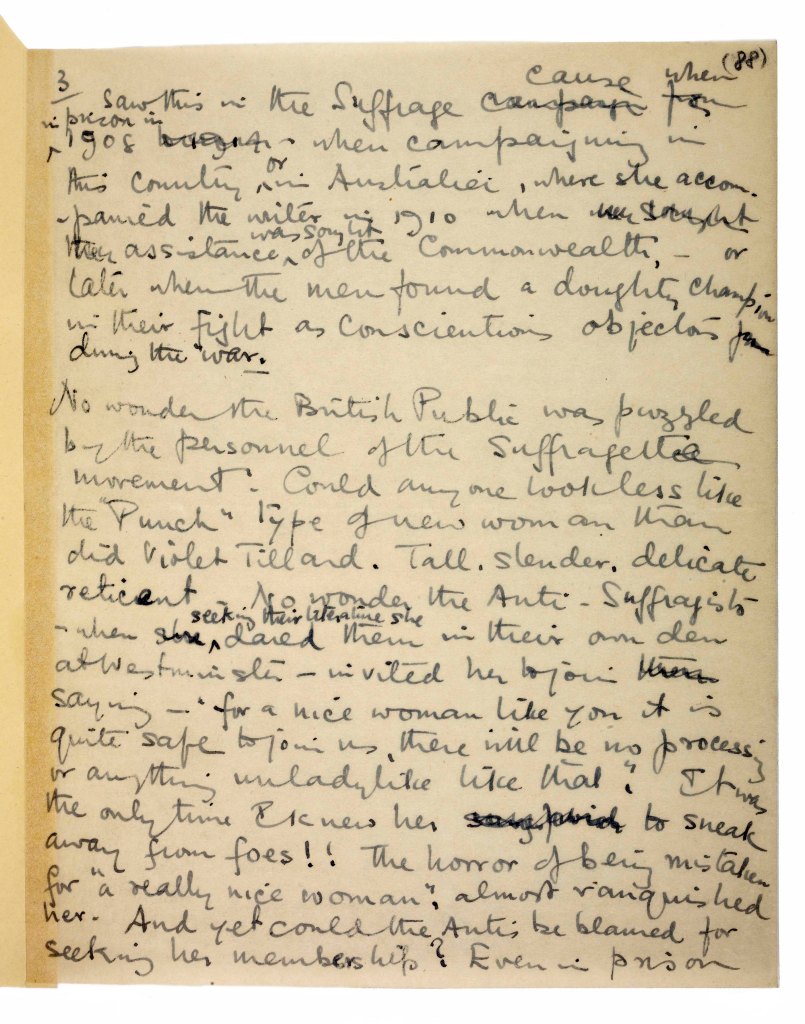 (88)
3
cause when
saw this in the Suffrage campaign from
in prison in
1908 when campaigning in
or
this country, in Australia, where she accom-
-panied the writer in 1910 when sought
was sought
their assistance of the Commonwealth, - or
later when the men found a doughty champion
in their fight as conscientious objectors
during the war.
No wonder the British Public was puzzled
by the personnel of the Suffragette
movement. Could anyone look less like
the "Punch" type of new woman than
did Violet Tillard. Tall. slender. delicate
reticent - No wonder the Anti-Suffragists
seeking their literature she
- when she, dared them in their own den
at Westminster - invited her to join them
saying - "for a nice woman like you it is
quite safe to join us, there will be no processing
or anything unladylike like that". It was
the only time I knew her to sneak
away from foes!! The horror of being mistaken
for "a really nice woman", almost vanquished
her. And yet could the Antis be blamed for
seeking her membership? Even in prison